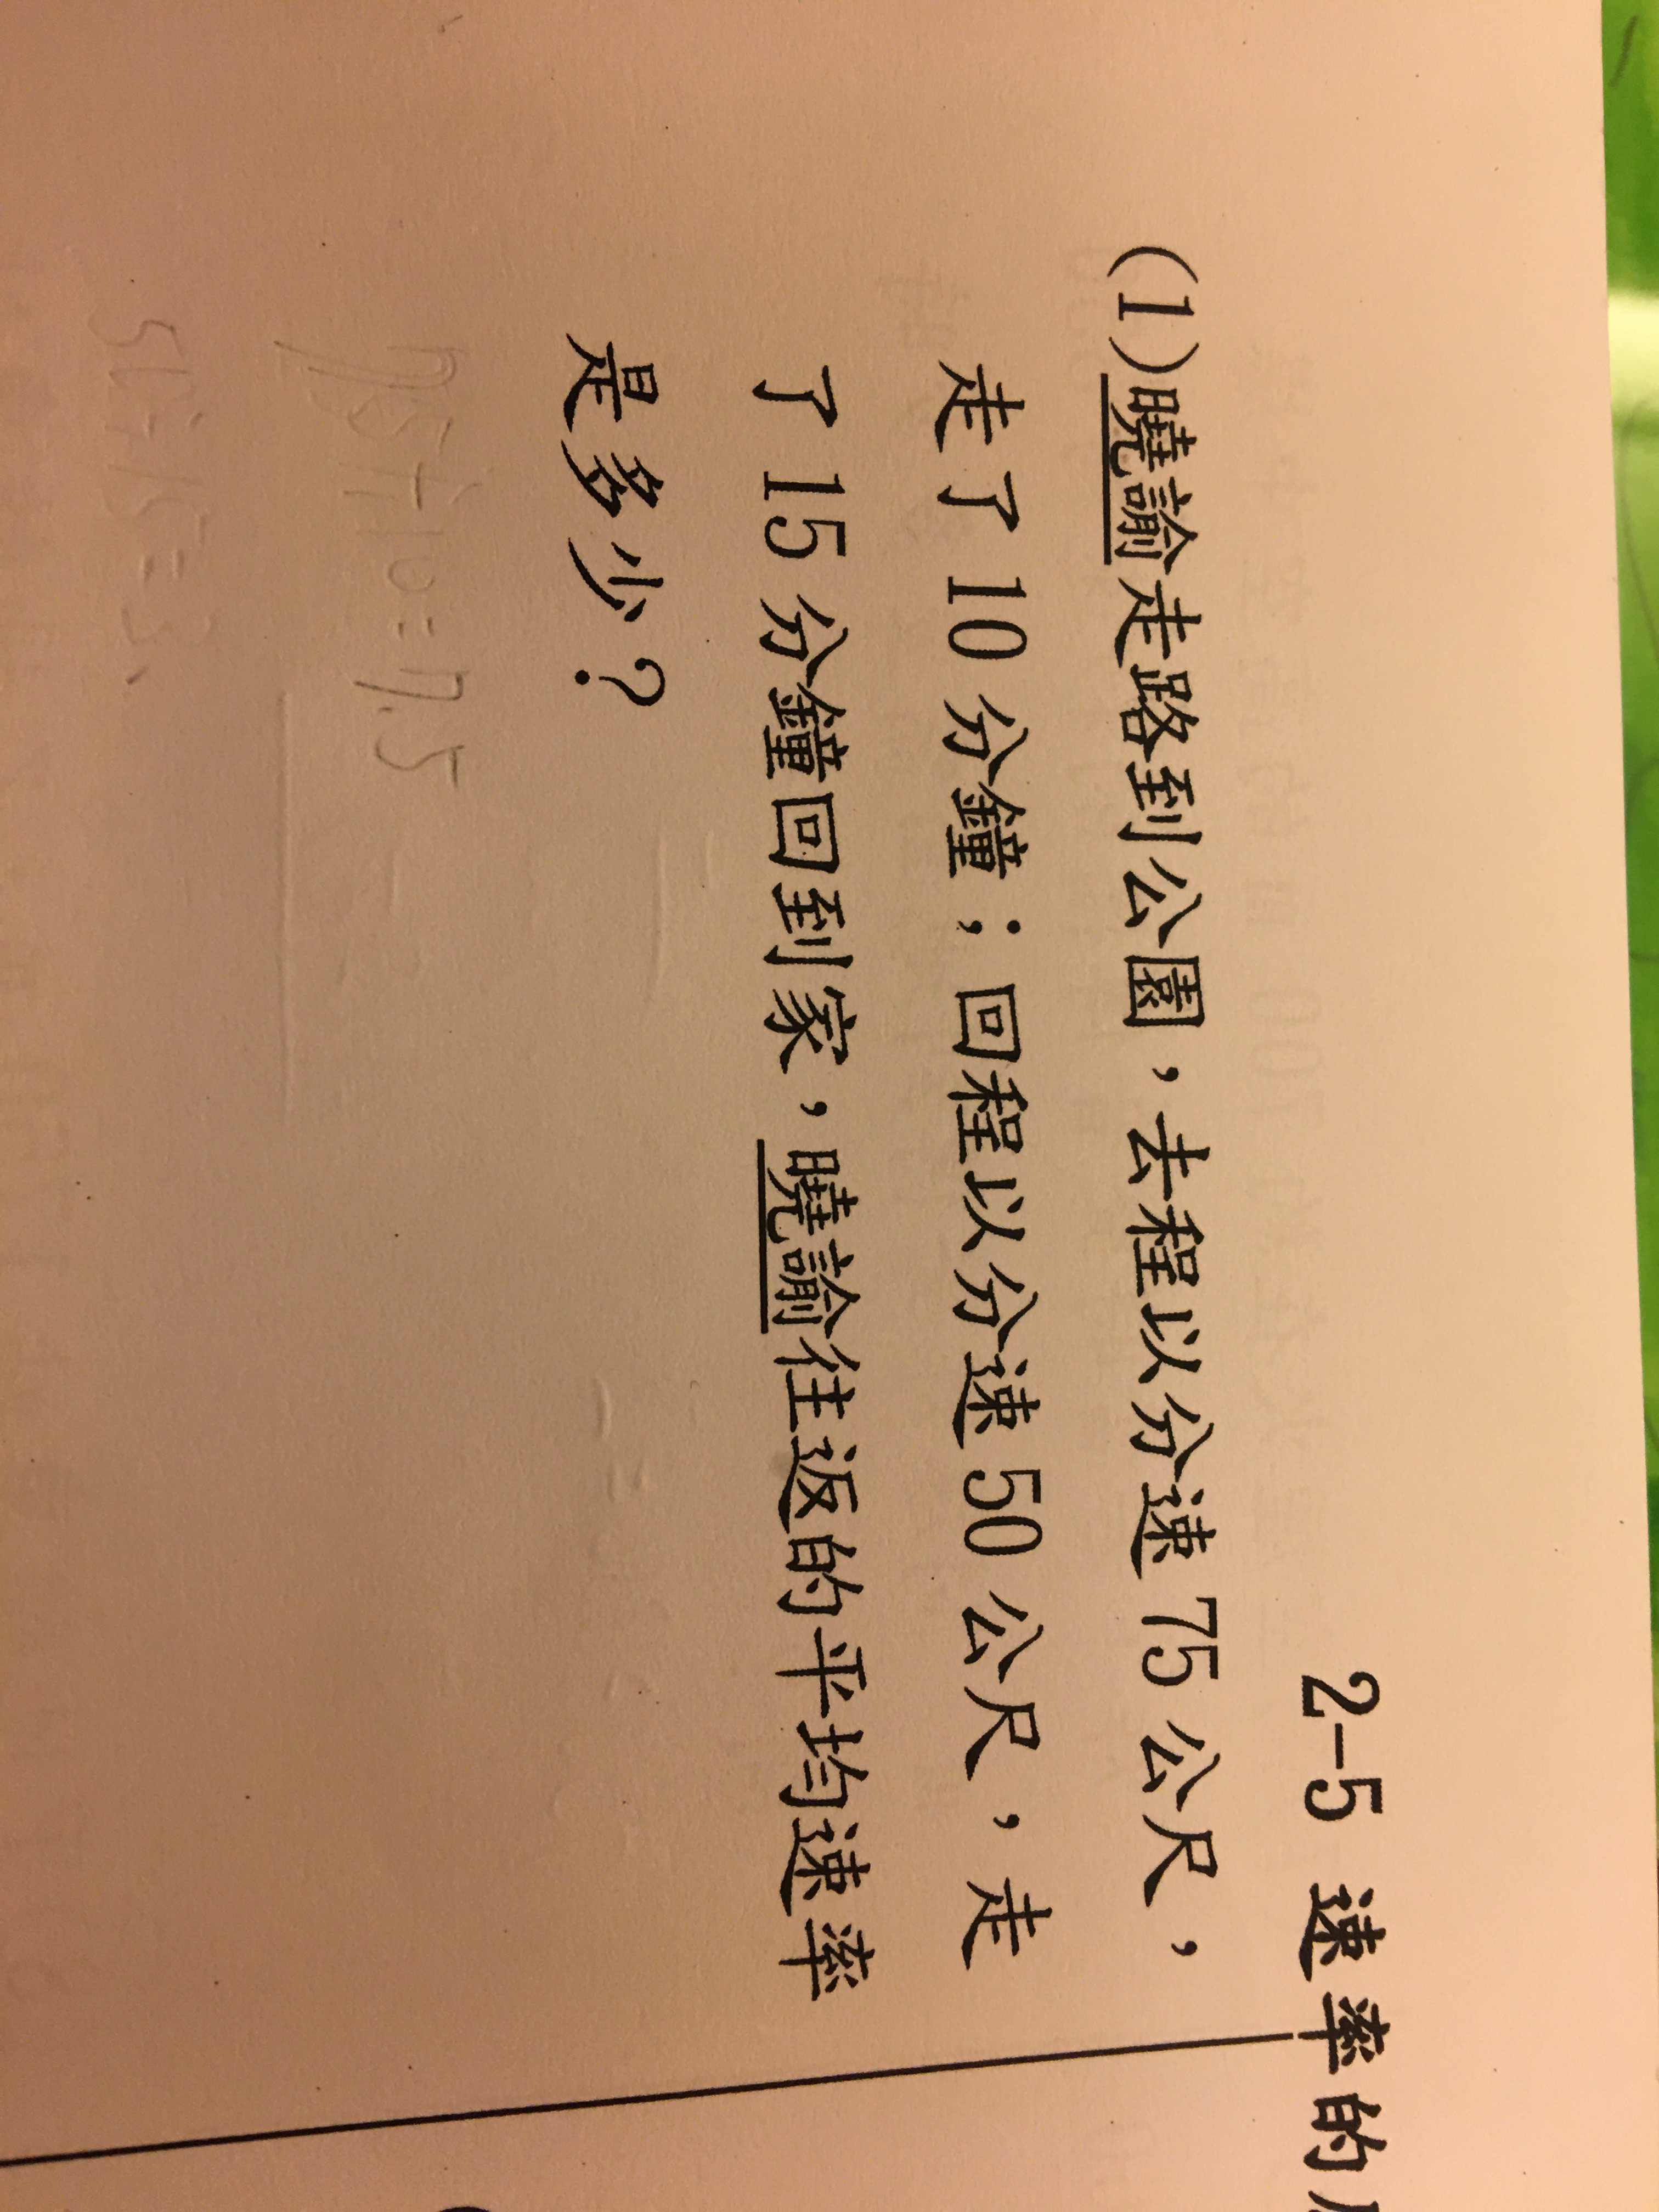 2-5 速率的
(1)曉諭走路到公園，去程以分速 75 公尺，
走了 10 分鐘；回程以分速 50 公尺，走
了 15 分鐘回到家，曉諭往返的平均速率
是多少？
75÷10=7.5
50÷15=3.